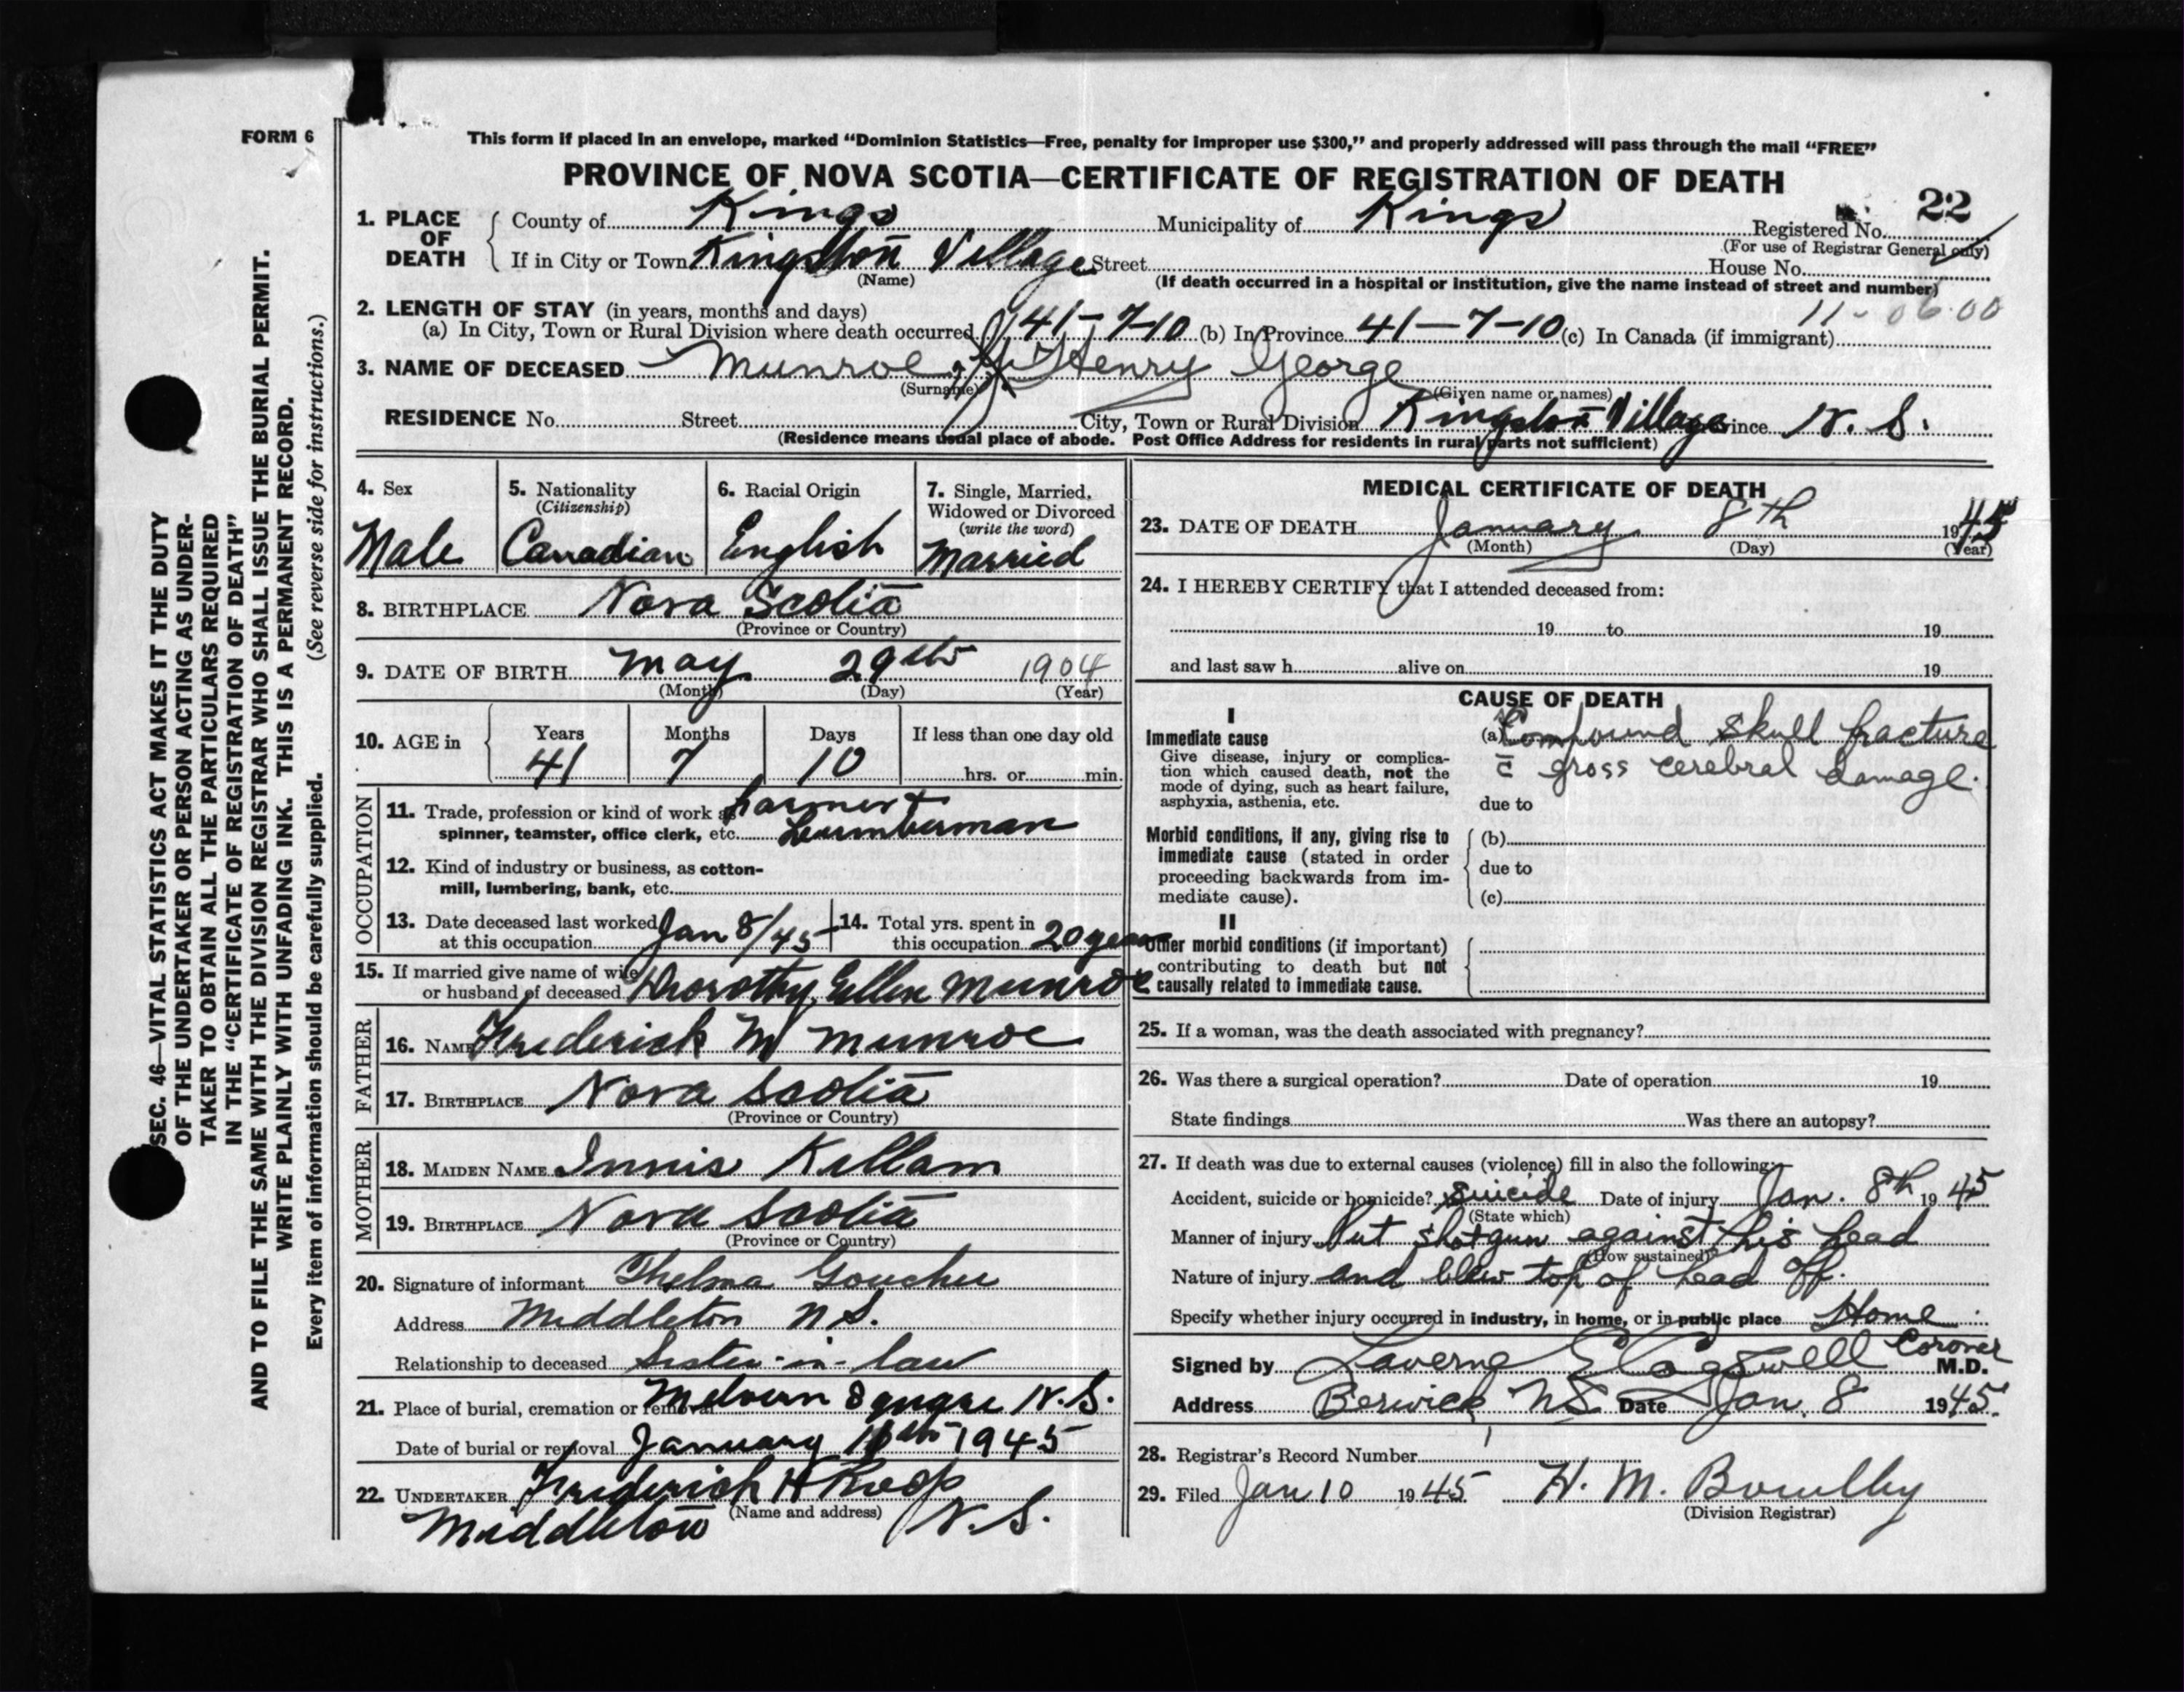 FORM 6
This form if placed in an envelope, marked “Dominion Statistics—Free, penalty for improper use $300,” and properly addressed will pass through the mail “FREE”
PROVINCE OF NOVA SCOTIA—CERTIFICATE OF REGISTRATION OF DEATH
22
1. PLACE OF DEATH County of Kings Municipality of Kings Registered No.
(For use of Registrar General only)
If in City or Town Kingston Village Street House No.
(Name) (If death occurred in a hospital or institution, give the name instead of street and number)
2. LENGTH OF STAY (in years, months and days) 11-06.00
(a) In City, Town or Rural Division where death occurred 41-7-10 (b) In Province 41-7-10 (c) In Canada (if immigrant)
3. NAME OF DECEASED Munroe Henry George
(Surname) (Given name or names)
RESIDENCE No. Street City, Town or Rural Division Kingston Village Province N. S.
(Residence means usual place of abode. Post Office Address for residents in rural parts not sufficient)
4. Sex
Male
5. Nationality
(Citizenship)
Canadian
6. Racial Origin
English
7. Single, Married,
Widowed or Divorced
(write the word)
Married
8. BIRTHPLACE Nova Scotia
(Province or Country)
9. DATE OF BIRTH May 29th 1904
(Month) (Day) (Year)
10. AGE in Years Months Days If less than one day old
41 7 10 hrs. or min.
OCCUPATION
11. Trade, profession or kind of work as Farmer +
spinner, teamster, office clerk, etc. Lumberman
12. Kind of industry or business, as cotton-
mill, lumbering, bank, etc.
13. Date deceased last worked
at this occupation Jan 8/45
14. Total yrs. spent in
this occupation 20 years
15. If married give name of wife
or husband of deceased Dorothy Ellen Munroe
FATHER
16. NAME Frederick M Munroe
17. BIRTHPLACE Nova Scotia
(Province or Country)
MOTHER
18. MAIDEN NAME Innis Killam
19. BIRTHPLACE Nova Scotia
(Province or Country)
20. Signature of informant Thelma Goucher
Address Middleton N.S.
Relationship to deceased Sister-in-law
21. Place of burial, cremation or removal Melvern Square N.S.
Date of burial or removal January 1945
22. UNDERTAKER Frederick H Roop
(Name and address)
Middleton N.S.
MEDICAL CERTIFICATE OF DEATH
23. DATE OF DEATH January 8th 1945
(Month) (Day) (Year)
24. I HEREBY CERTIFY that I attended deceased from:
19 to 19
and last saw h alive on 19
CAUSE OF DEATH
I
Immediate cause
Give disease, injury or complica-
tion which caused death, not the
mode of dying, such as heart failure,
asphyxia, asthenia, etc.
(a) Compound skull fracture
c̄ gross cerebral damage.
due to
Morbid conditions, if any, giving rise to
immediate cause (stated in order
proceeding backwards from im-
mediate cause).
(b)
due to
(c)
II
Other morbid conditions (if important)
contributing to death but not
causally related to immediate cause.
25. If a woman, was the death associated with pregnancy?
26. Was there a surgical operation? Date of operation 19
State findings Was there an autopsy?
27. If death was due to external causes (violence) fill in also the following:—
Accident, suicide or homicide? Suicide Date of injury Jan. 8th 1945
(State which)
Manner of injury Put shotgun against his head
(How sustained)
Nature of injury and blew top of head off.
Specify whether injury occurred in industry, in home, or in public place Home
Signed by Laverne E Cogswell Coroner M.D.
Address Berwick NS Date Jan. 8 1945.
28. Registrar's Record Number 1
29. Filed Jan 10 1945 H. M.
(Division Registrar)
SEC. 46—VITAL STATISTICS ACT MAKES IT THE DUTY
OF THE UNDERTAKER OR PERSON ACTING AS UNDER-
TAKER TO OBTAIN ALL THE PARTICULARS REQUIRED
IN THE “CERTIFICATE OF REGISTRATION OF DEATH”
AND TO FILE THE SAME WITH THE DIVISION REGISTRAR WHO SHALL ISSUE THE BURIAL PERMIT.
WRITE PLAINLY WITH UNFADING INK. THIS IS A PERMANENT RECORD.
Every item of information should be carefully supplied. (See reverse side for instructions.)